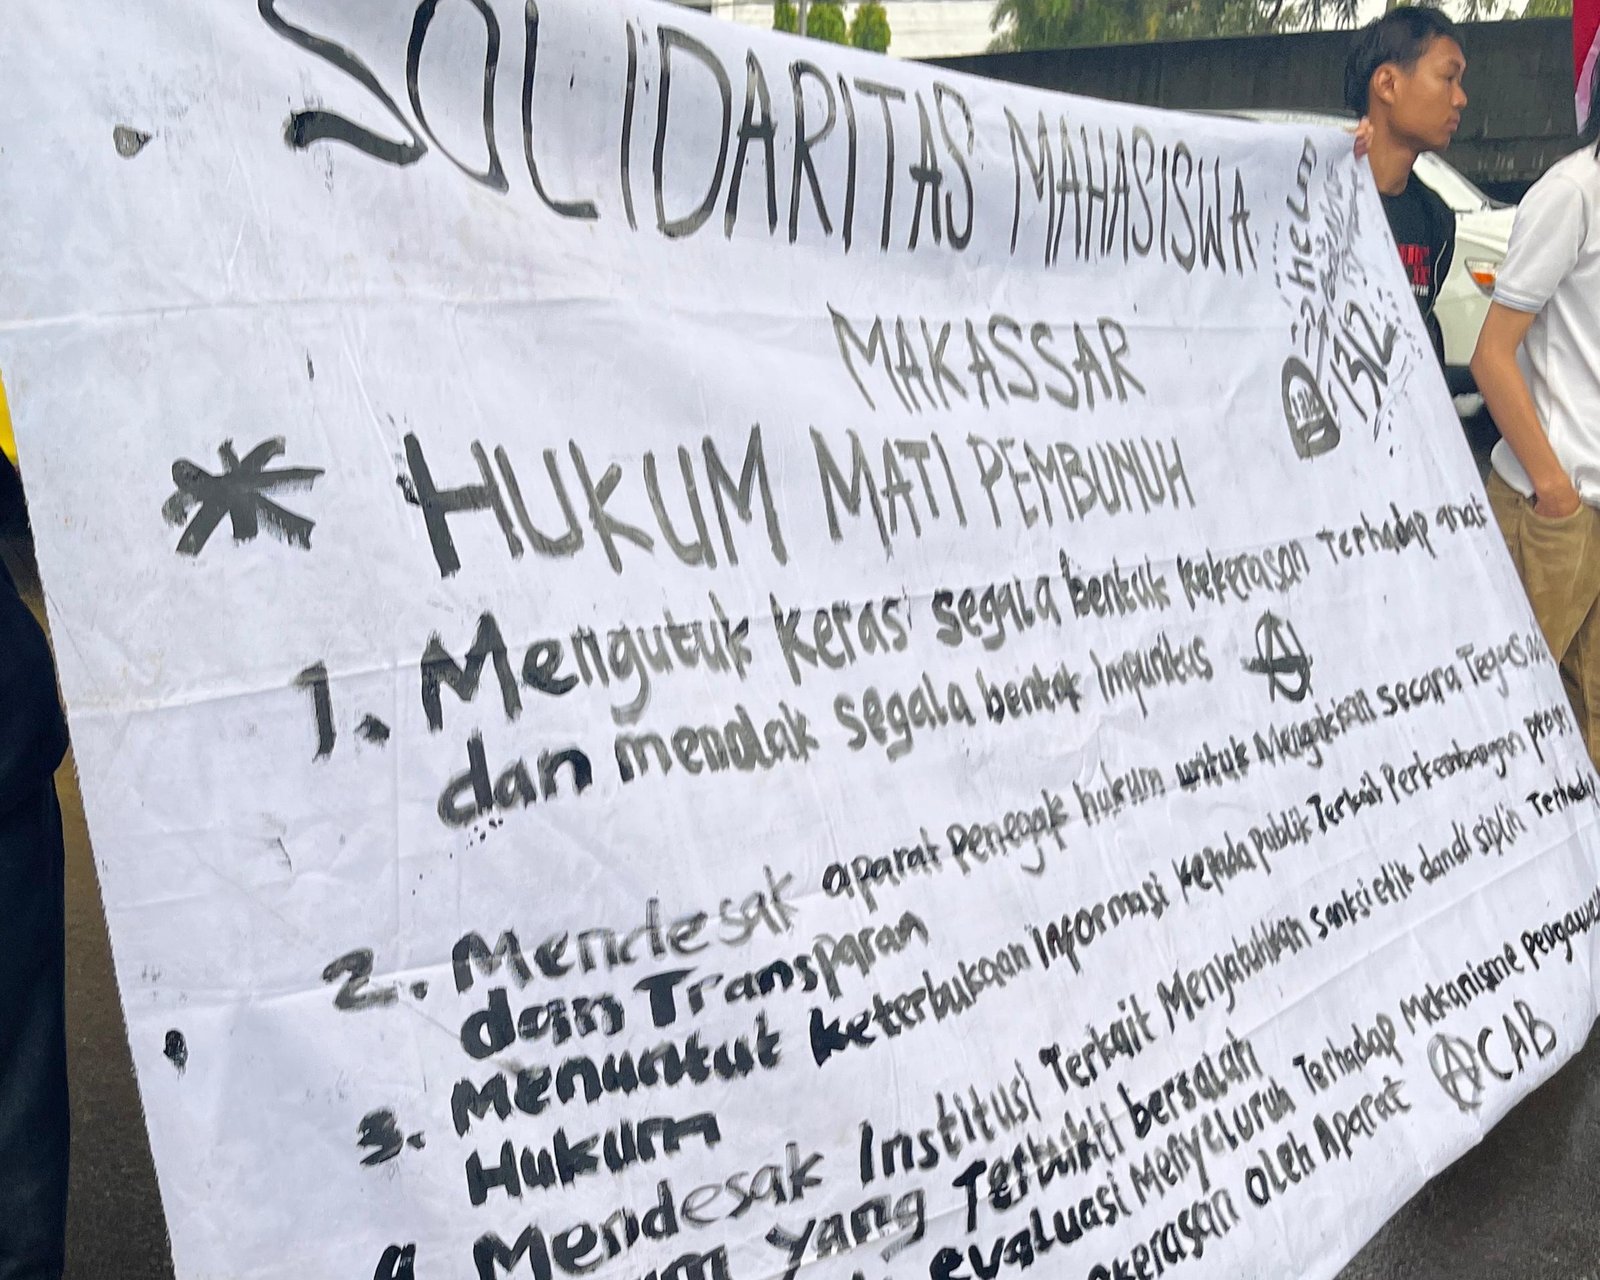 SOLIDARITAS MAHASISWA
MAKASSAR
1312
* HUKUM MATI PEMBUNUH
1. Mengutuk keras segala bentuk kekerasan Terhadap anak
dan menolak segala bentuk Impunitas
2. Mendesak aparat penegak hukum untuk secara Tegas
dan Transparan
3. Menuntut keterbukaan Informasi kepada publik Terkait Perkembangan
Hukum
Mendesak Institusi Terkait Menjatuhkan sanksi etik dan disiplin Terhadap
yang Terbukti bersalah
evaluasi Menyeluruh Terhadap Mekanisme
oleh Aparat ACAB